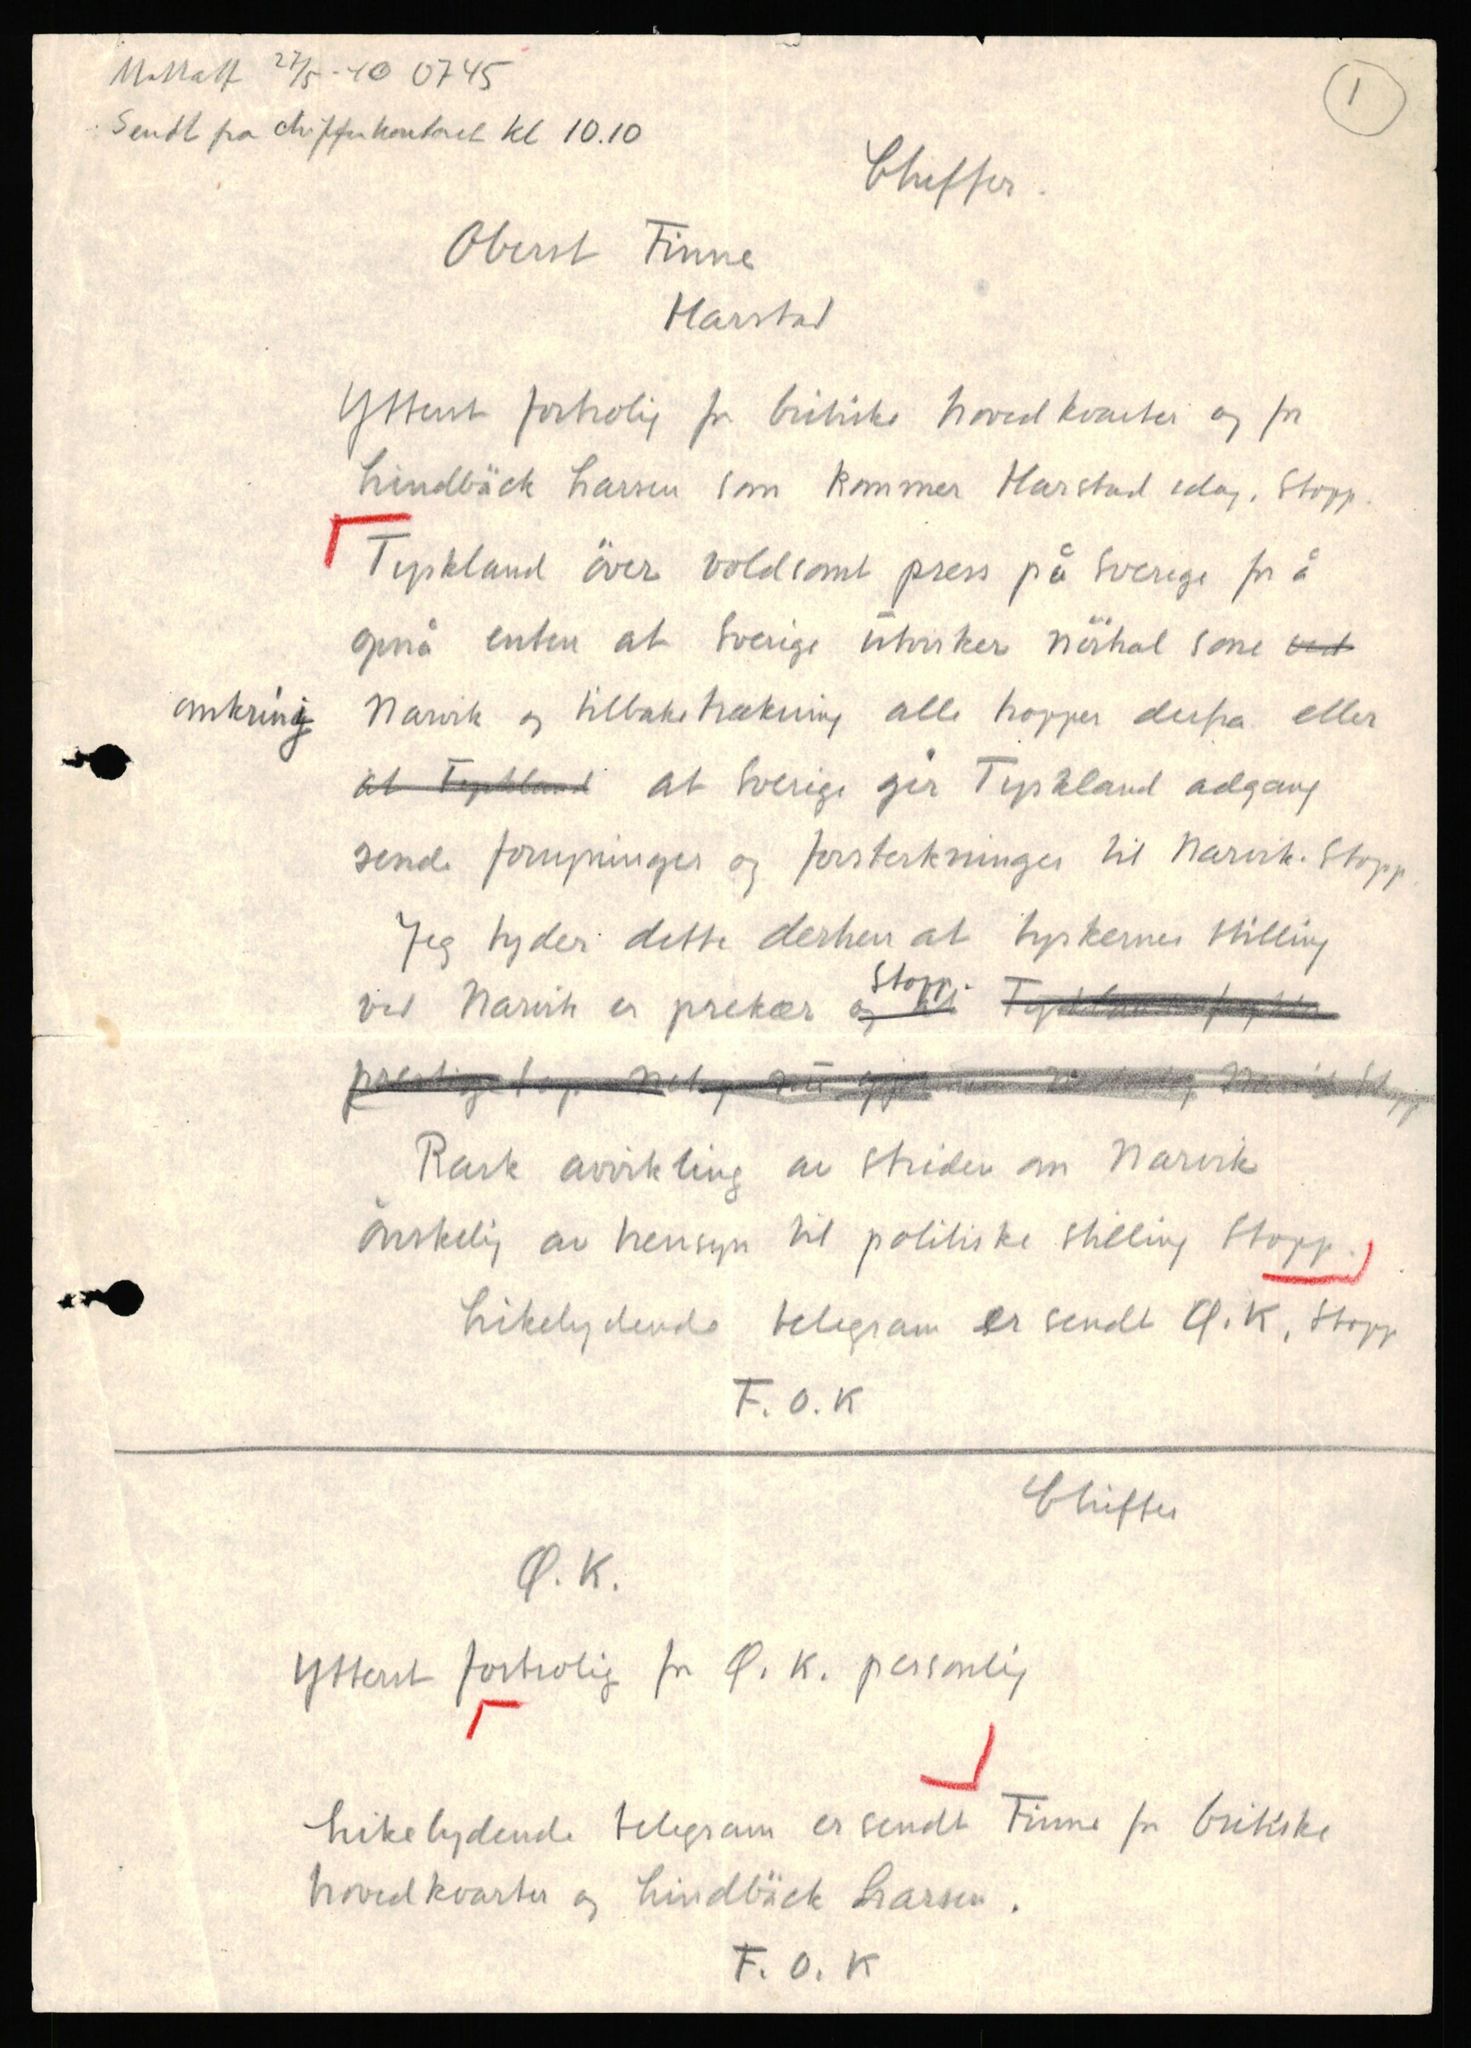 Mottatt 27/5-40 0745
Sendt fra chifferkontoret kl 10.10
1
Chiffer.
Oberst Finne
Harstad
Ytterst fortrolig for britiske hovedkvarter og for
Lindbäck Larsen som kommer Harstad idag. Stopp.
Tyskland över voldsomt press på Sverige for å
opnå enten at Sverige utvirker nöitral sone ved
omkring Narvik og tilbaketrækning alle tropper derfra eller
at Tyskland at Sverige gir Tyskland adgang
sende forsyninger og forsterkninger til Narvik. Stopp.
Jeg tyder dette derhen at tyskernes stilling
Stopp.
ved Narvik er prekær og at
prestige
Rask avvikling av striden om Narvik
önskelig av hensyn til politiske stilling Stopp.
Likelydende telegram er sendt Ø.K. Stopp
F.O.K
Chiffer
Ø.K.
Ytterst fortrolig for Ø.K. personlig
Likelydende telegram er sendt Finne for britiske
hovedkvarter og Lindbäck Larsen.
F.O.K